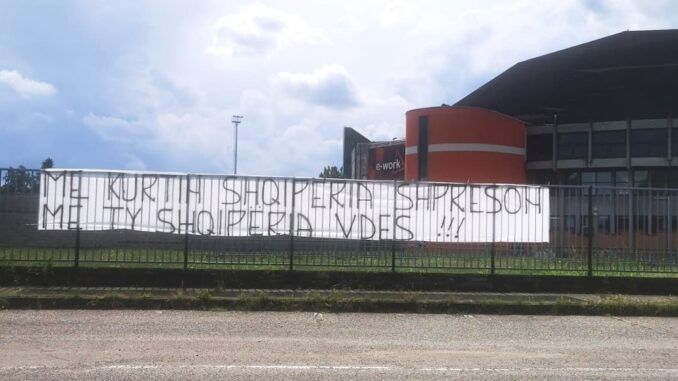 ME KURTIN SHQIPERIA SHPRESON
ME TY SHQIPERIA VDES !!!
e-work